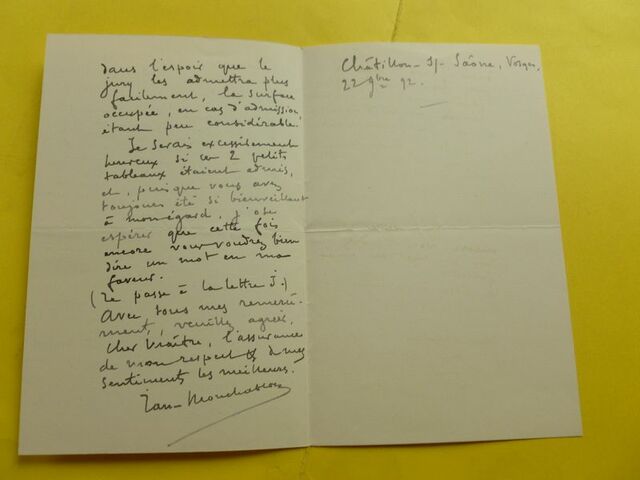 dans l'espoir que le
jury les admettra plus
facilement, la surface
occupée, en cas d'admission
étant peu considérable.
Je serais excessivement
heureux si ces 2 petits
tableaux étaient admis,
et, puisque vous avez
toujours été si bienveillant
à mon égard, j'ose
espérer que cette fois
encore vous voudrez bien
dire un mot en ma
faveur.
(Je passe à la lettre J.)
Avec tous mes remercie-
ment, veuillez agréer,
Cher Maître, l'assurance
de mon respect & de mes
sentiments les meilleurs.
Jan-Monchablon
Châtillon-s/-Saône, Vosges,
22 9bre 92.